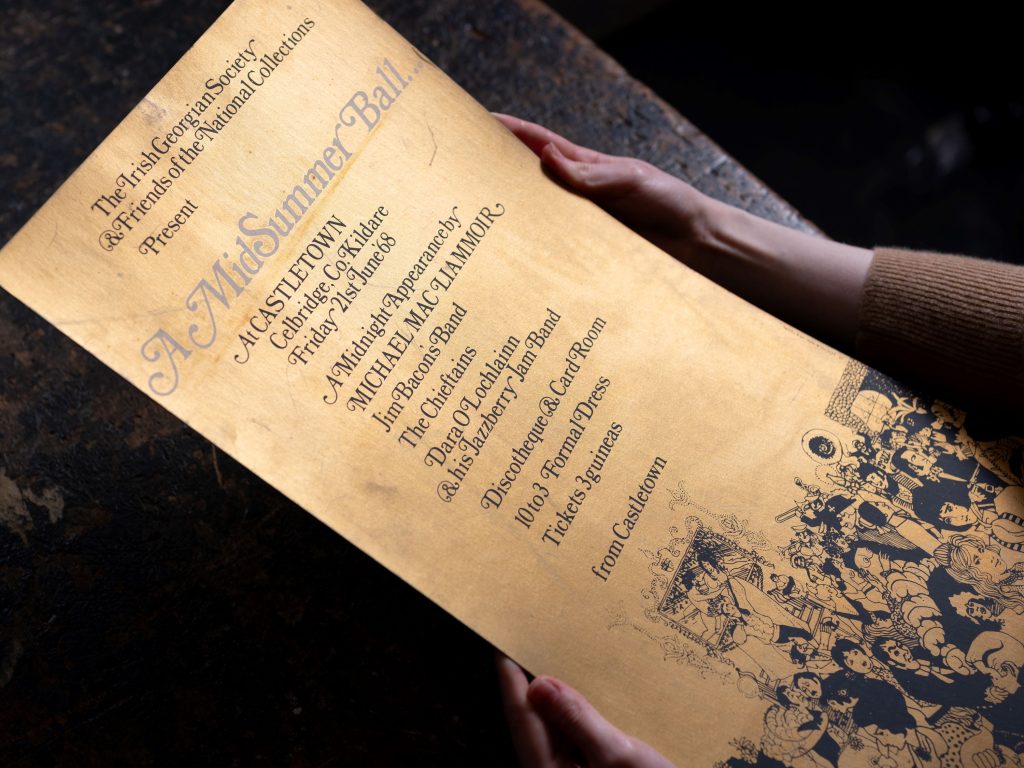 The Irish Georgian Society
& Friends of the National Collections
Present
A MidSummer Ball...
At CASTLETOWN
Celbridge. Co. Kildare
Friday 21st June '68
A Midnight Appearance by
MICHAEL MAC LIAMMOIR
Jim Bacons Band
The Chieftains
Dara O'Lochlainn
& his Jazzberry Jam Band
Discotheque & Card Room
10 to 3 Formal Dress
Tickets 3 guineas
from Castletown